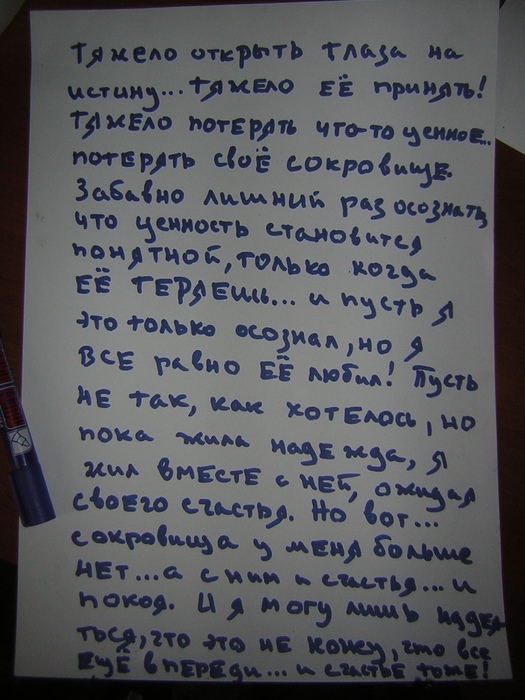 Тяжело открыть глаза на
истину... тяжело её принять!
Тяжело потерять что-то ценное..
потерять своё сокровище.
Забавно лишний раз осознать,
что ценность становится
понятной, только когда
её теряешь... и пусть я
это только осознал, но я
всё равно её любил! Пусть
не так, как хотелось, но
пока жила надежда, я
жил вместе с ней, ожидая
своего счастья. Но вот...
сокровища у меня больше
нет... а с ним и счастья... и
покоя. И я могу лишь надея-
ться, что это не конец, что все
ещё впереди... и счастье тоже!